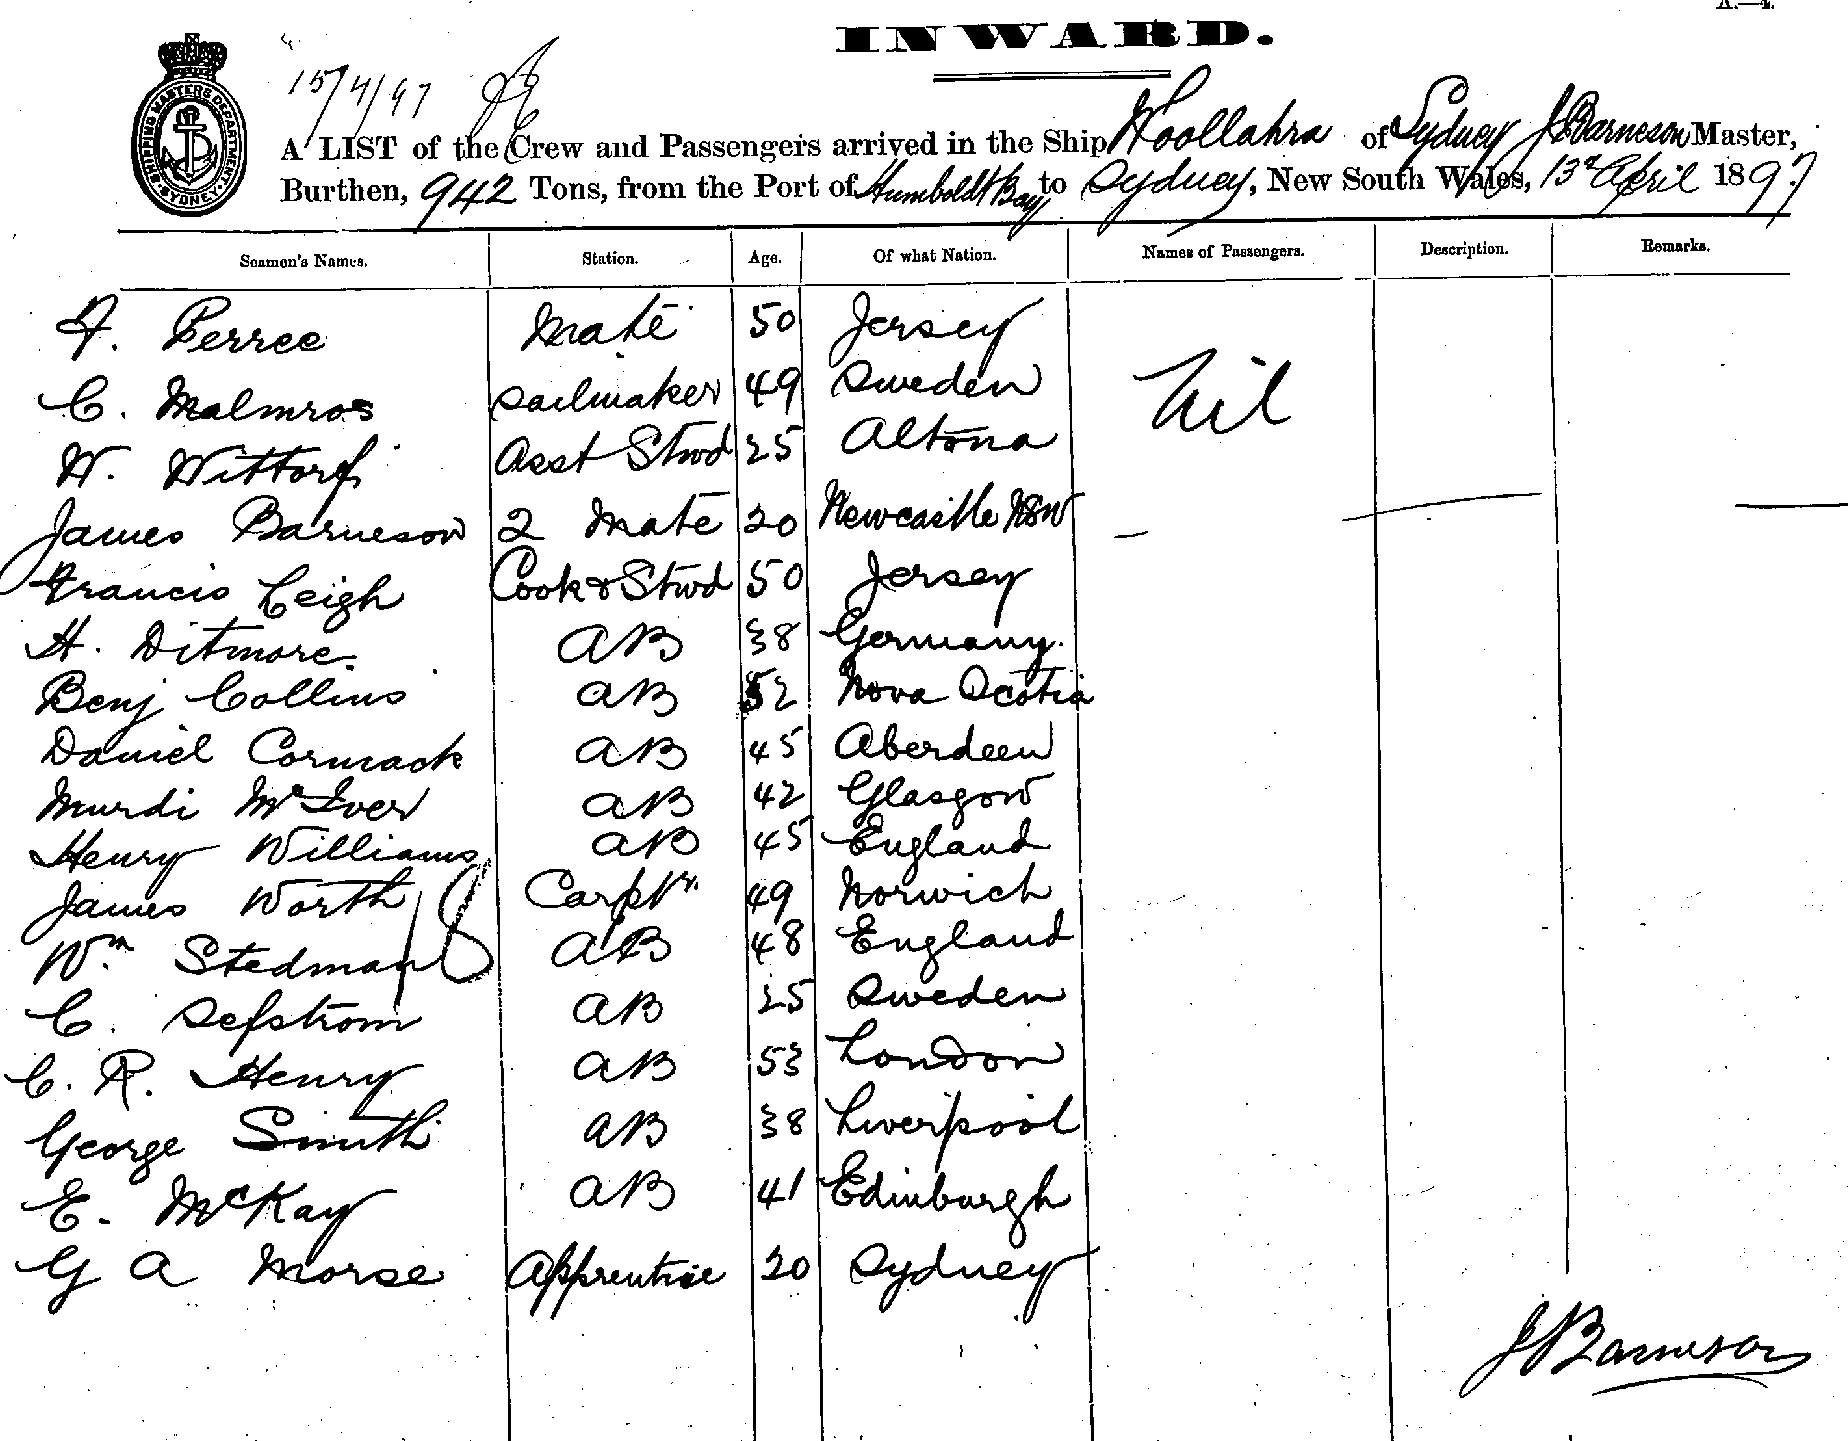 A.—4.
INWARD.
15/4/97
A LIST of the Crew and Passengers arrived in the Ship Woollahra of Sydney J Barneson Master,
Burthen, 942 Tons, from the Port of Humboldt Bay to Sydney, New South Wales, 13th April 1897
SHIPPING MASTERS DEPARTMENT SYDNEY
Seamen's Names. Station. Age. Of what Nation. Names of Passengers. Description. Remarks.
F. Perree Mate 50 Jersey
C. Malmros Sailmaker 49 Sweden Nil
W. Wittorf Asst Stwd 25 Altona
James Barneson 2 Mate 20 Newcastle NSW —
Francis Leigh Cook & Stwd 50 Jersey
H. Ditmore AB 38 Germany.
Benj Collins AB 52 Nova Scotia
Daniel Cormack AB 45 Aberdeen
Murdi McIver AB 42 Glasgow
Henry Williams AB 45 England
James Worth Carptr. 49 Norwich
18
Wm Stedman AB 48 England
C. Sefstrom AB 25 Sweden
C. R. Henry AB 53 London
George Smith AB 38 Liverpool
E. McKay AB 41 Edinburgh
G A Morse Apprentice 20 Sydney
J Barneson